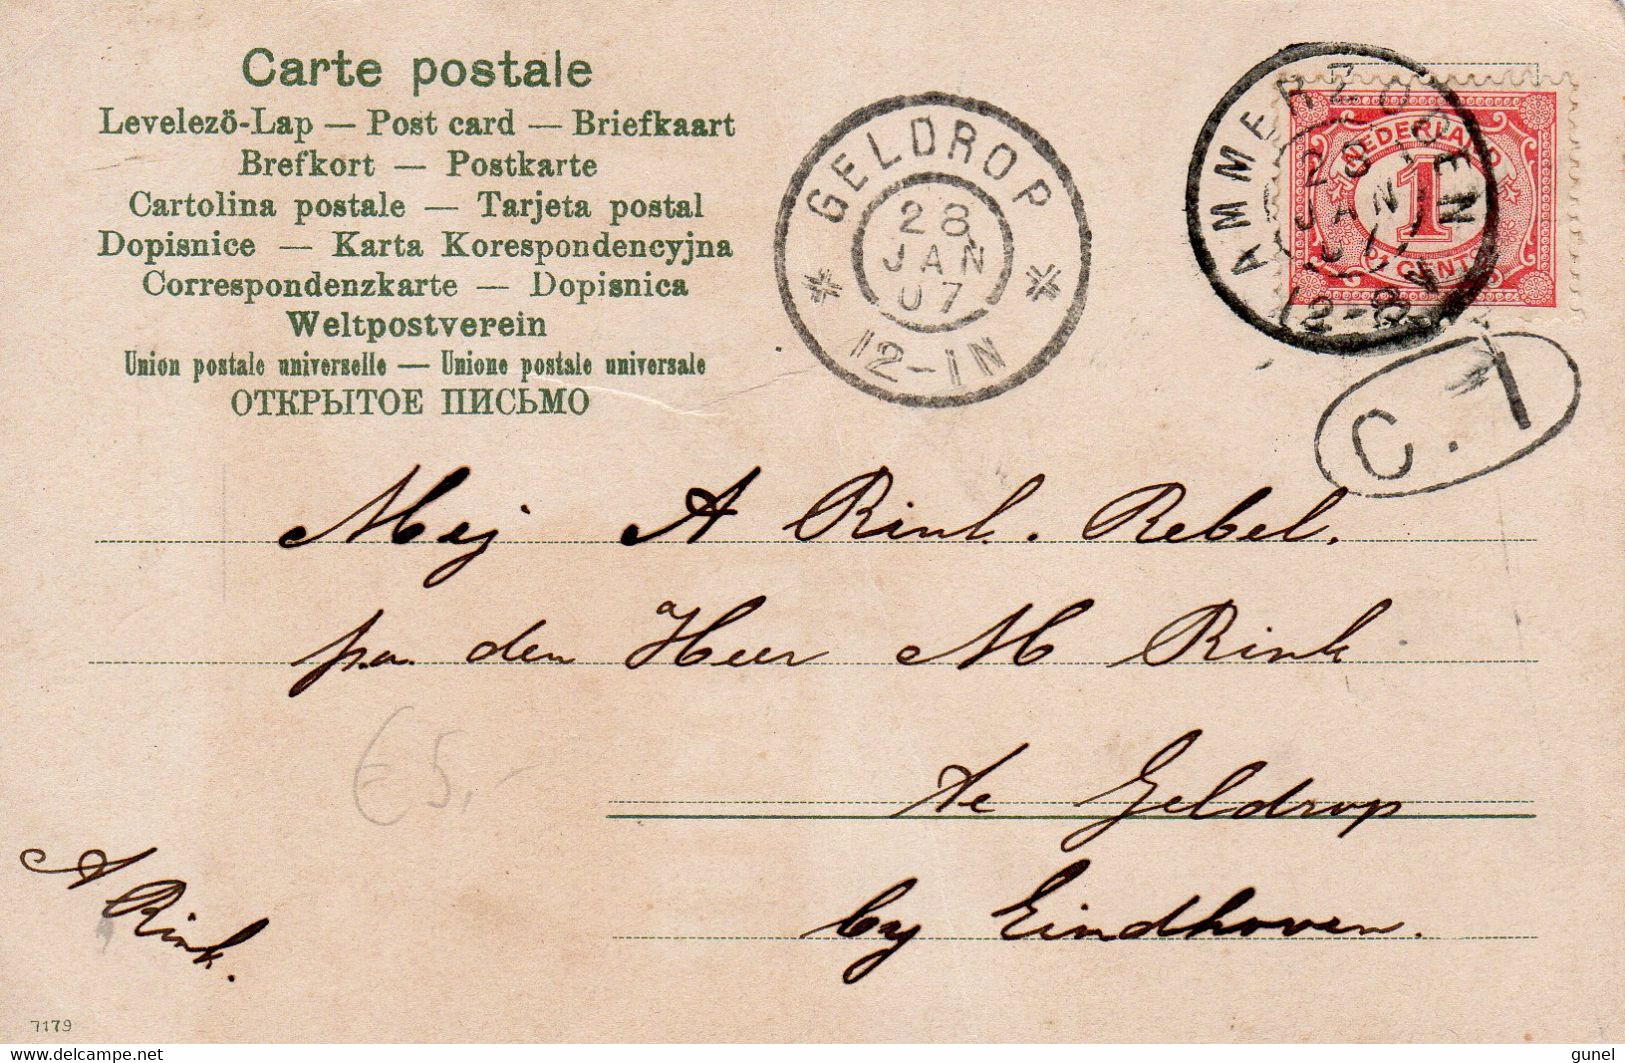 Carte postale
Levelező-Lap — Post card — Briefkaart
Brefkort — Postkarte
Cartolina postale — Tarjeta postal
Dopisnice — Karta Korespondencyjna
Correspondenzkarte — Dopisnica
Weltpostverein
Union postale universelle — Unione postale universale
ОТКРЫТОЕ ПИСЬМО
GELDROP
28
JAN
07
12-1N
AMMERZODEN
28
JAN
07
12-8V
NEDERLAND
1
CENT
C.1
Mej A Rink. Rebel.
p.a. den Heer M Rink
te Geldrop
by Eindhoven.
A Rink.
€5,-
7179
delcampe.net
gunel